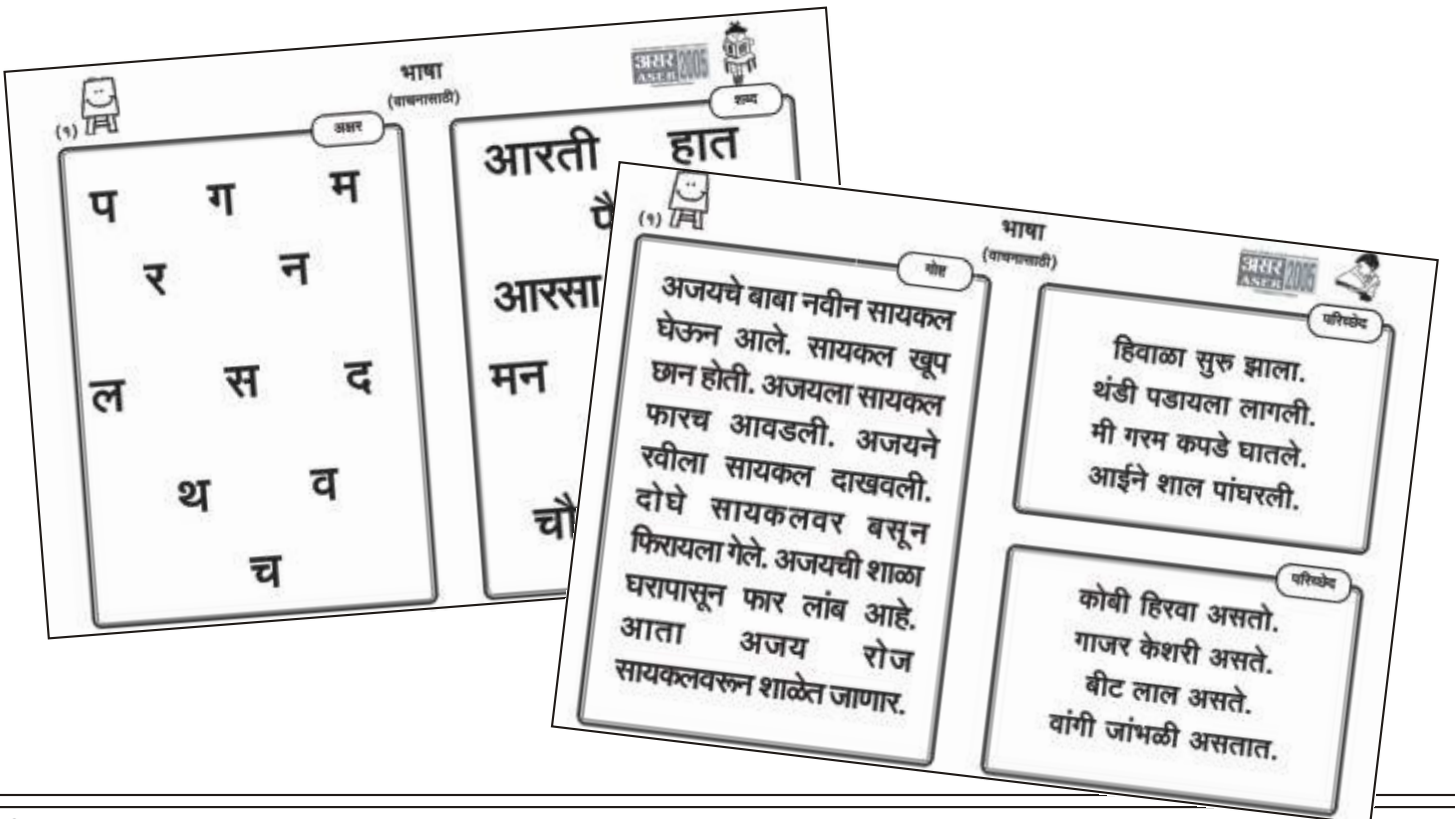 भाषा
(वाचनासाठी)
असर 2005
ASER
(१)
अक्षर
प ग म
र न
ल स द
थ व
च
शब्द
आरती हात
पै
आरसा
मन
चौ
(१)
भाषा
(वाचनासाठी)
असर 2005
ASER
गोष्ट
अजयचे बाबा नवीन सायकल
घेऊन आले. सायकल खूप
छान होती. अजयला सायकल
फारच आवडली. अजयने
रवीला सायकल दाखवली.
दोघे सायकलवर बसून
फिरायला गेले. अजयची शाळा
घरापासून फार लांब आहे.
आता अजय रोज
सायकलवरून शाळेत जाणार.
परिच्छेद
हिवाळा सुरु झाला.
थंडी पडायला लागली.
मी गरम कपडे घातले.
आईने शाल पांघरली.
परिच्छेद
कोबी हिरवा असतो.
गाजर केशरी असते.
बीट लाल असते.
वांगी जांभळी असतात.